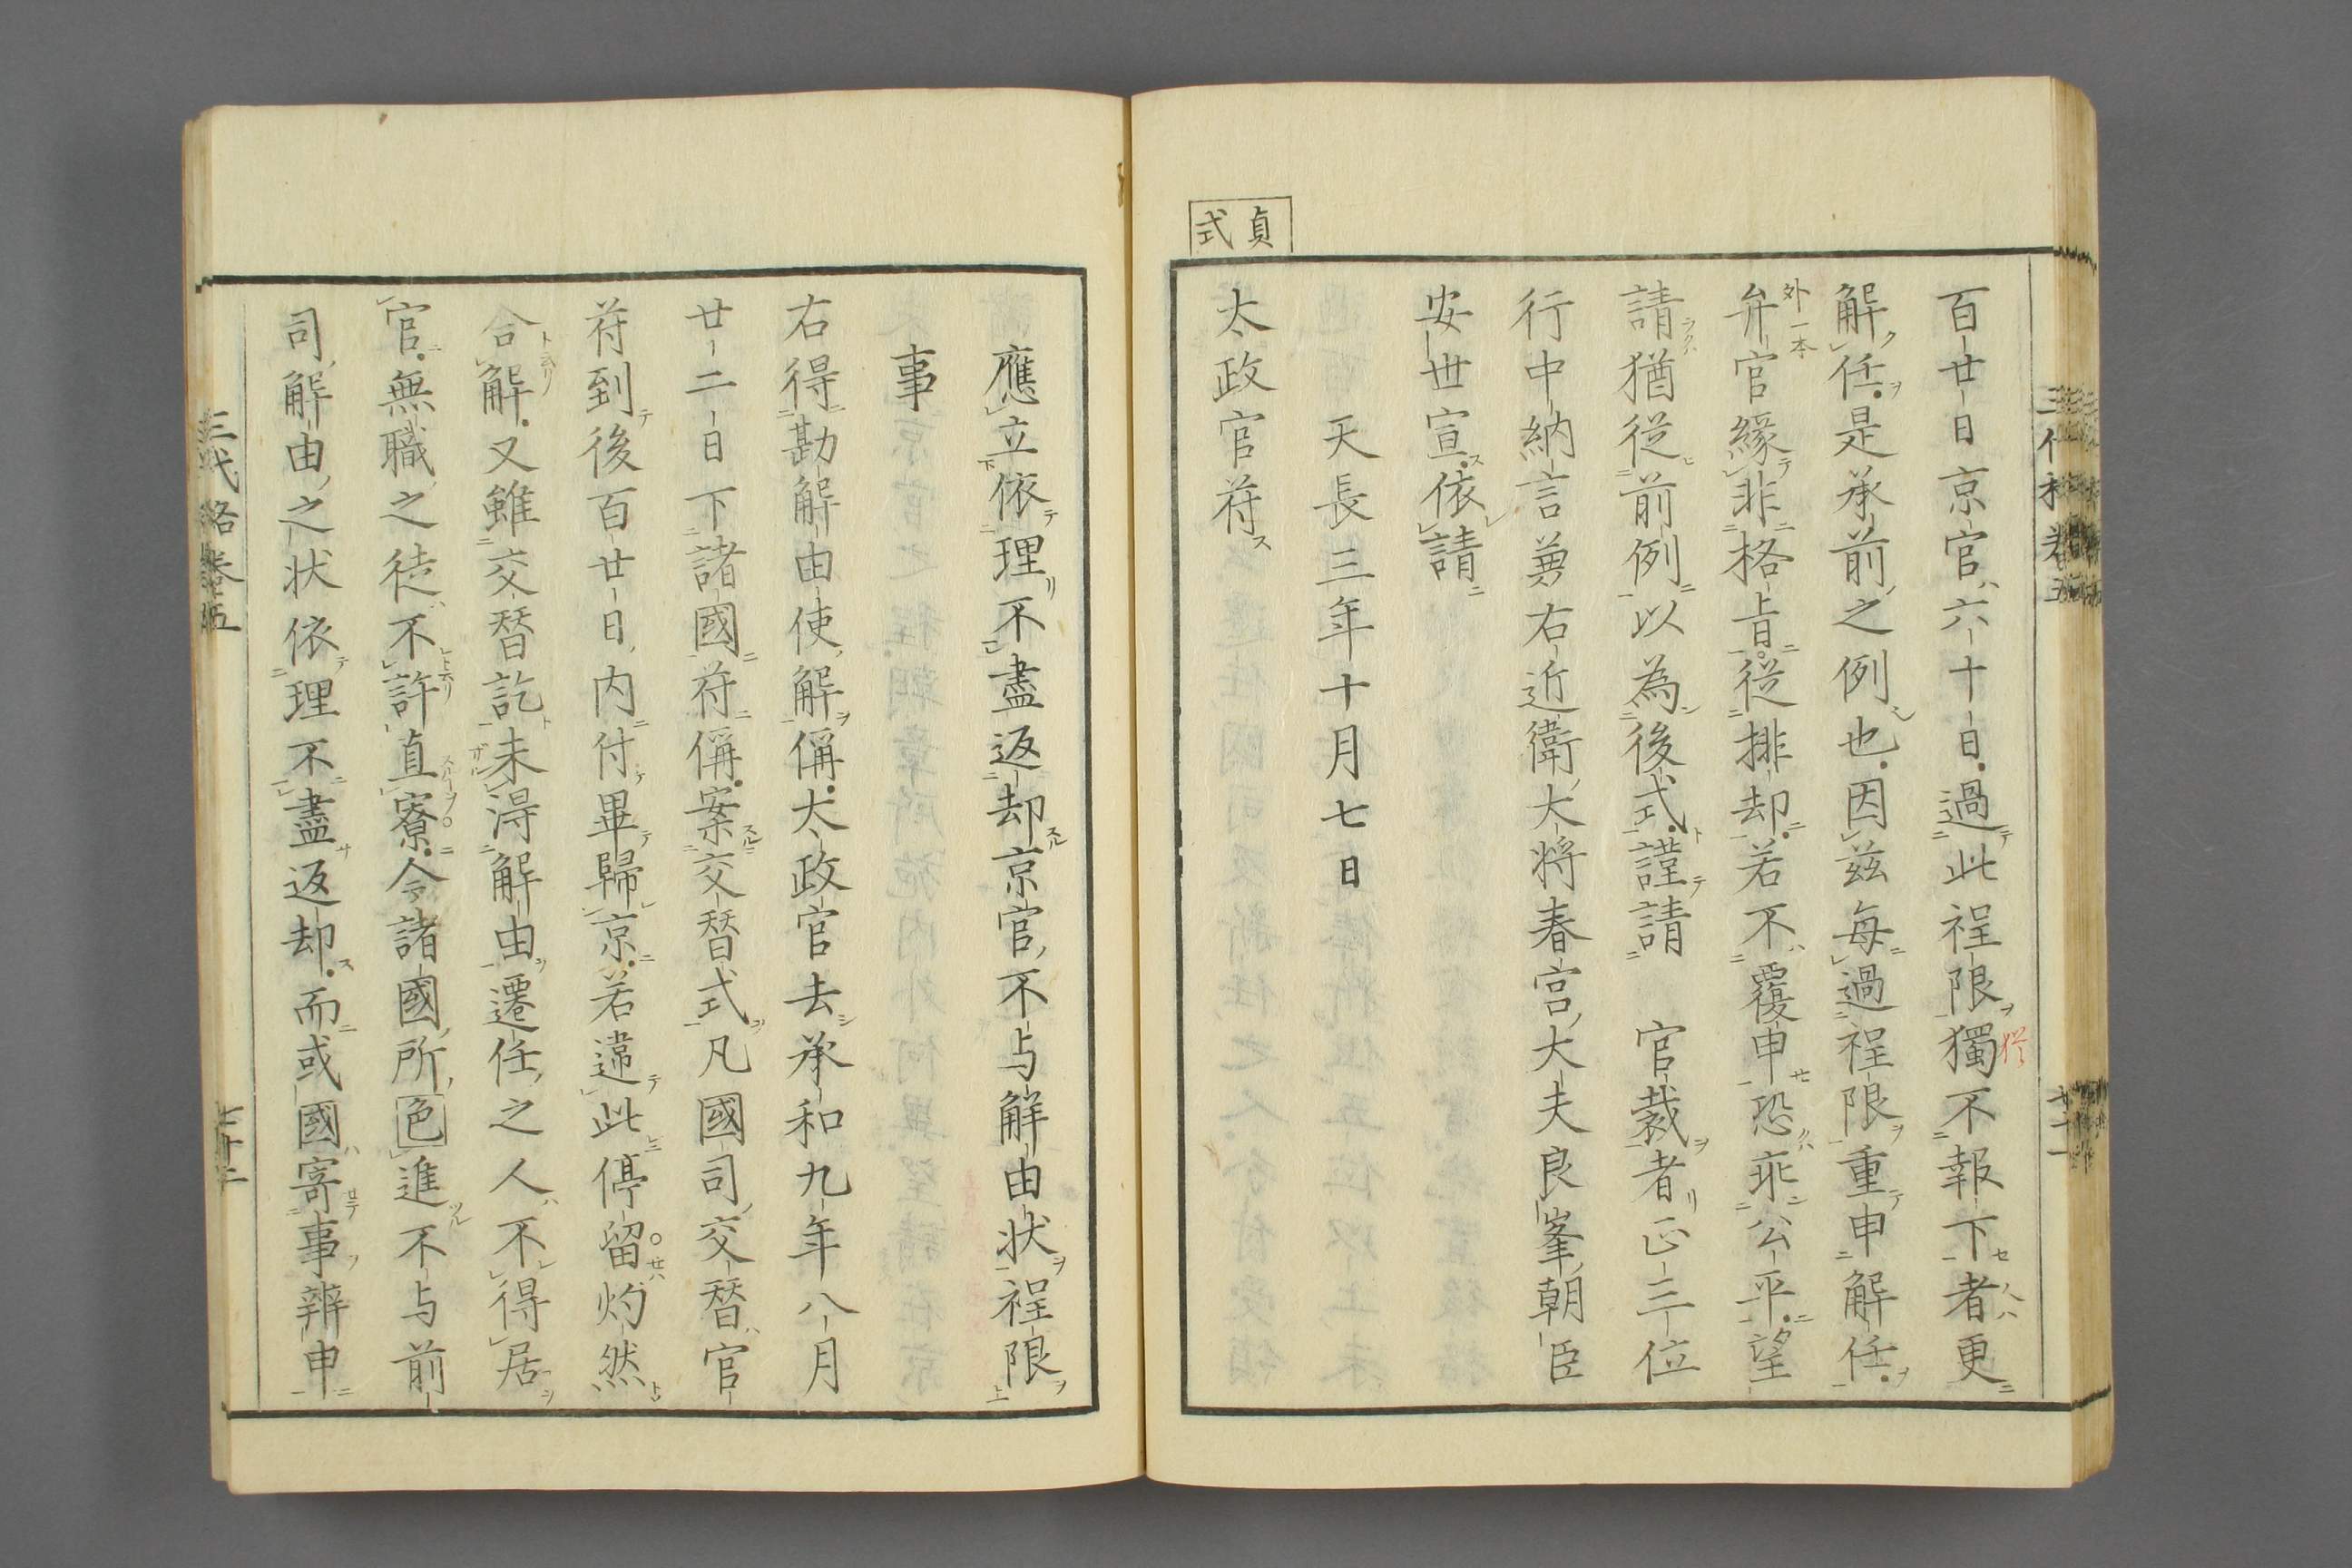 百廿日京官六十日過此程限獨不報下者更
解任是承前之例也因茲每過程限重申解任
弁官緣非格旨從排却若不覆申恐乖公平望
外一本
請猶從前例以為後式謹請 官裁者正三位
行中納言兼右近衛大将春宮大夫良峯朝臣
安世宣依請
天長三年十月七日
貞式
太政官符
應立依理不盡返却京官不与解由状程限
事
右得勘解由使解偁太政官去承和九年八月
廿二日下諸國符偁案交替式凡國司交替官
符到後百廿日内付畢歸京若違此停留灼然
合解又雖交替訖未得解由遷任之人不得居
官無職之徒不許直寮今諸國所色進不与前
司解由之状依理不盡返却而或國寄事辨申
三代格卷五